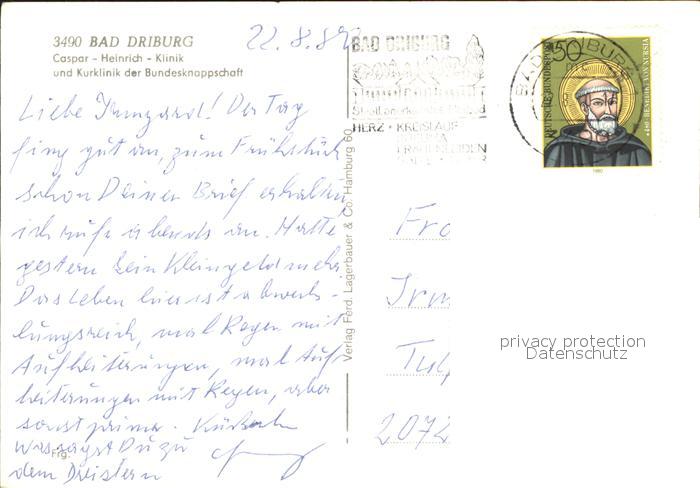 3490 BAD DRIBURG
Caspar - Heinrich - Klinik
und Kurklinik der Bundesknappschaft
22.8.8
BAD DRIBURG
HERZ • KREISLAUF
FRAUENLEIDEN
BAD DRIBURG
50
DEUTSCHE BUNDESPOST
480-BENEDIKT VON NURSIA
1980
Liebe Irmgard! Der Tag
fing gut an, zum Frühstück
schon Deinen Brief erhalten,
ich rufe abends an. Hatte
gestern kein Kleingeld mehr.
Das Leben hier ist abwechs-
lungsreich, mal Regen mit
Aufheiterungen, mal Auf-
heiterungen mit Regen, aber
sonst prima.
Was sagst Du zu
dem Dreistern
Frg.
Verlag Ferd. Lagerbauer & Co. Hamburg 60
Fra
Irm
Tul
2072
privacy protection
Datenschutz